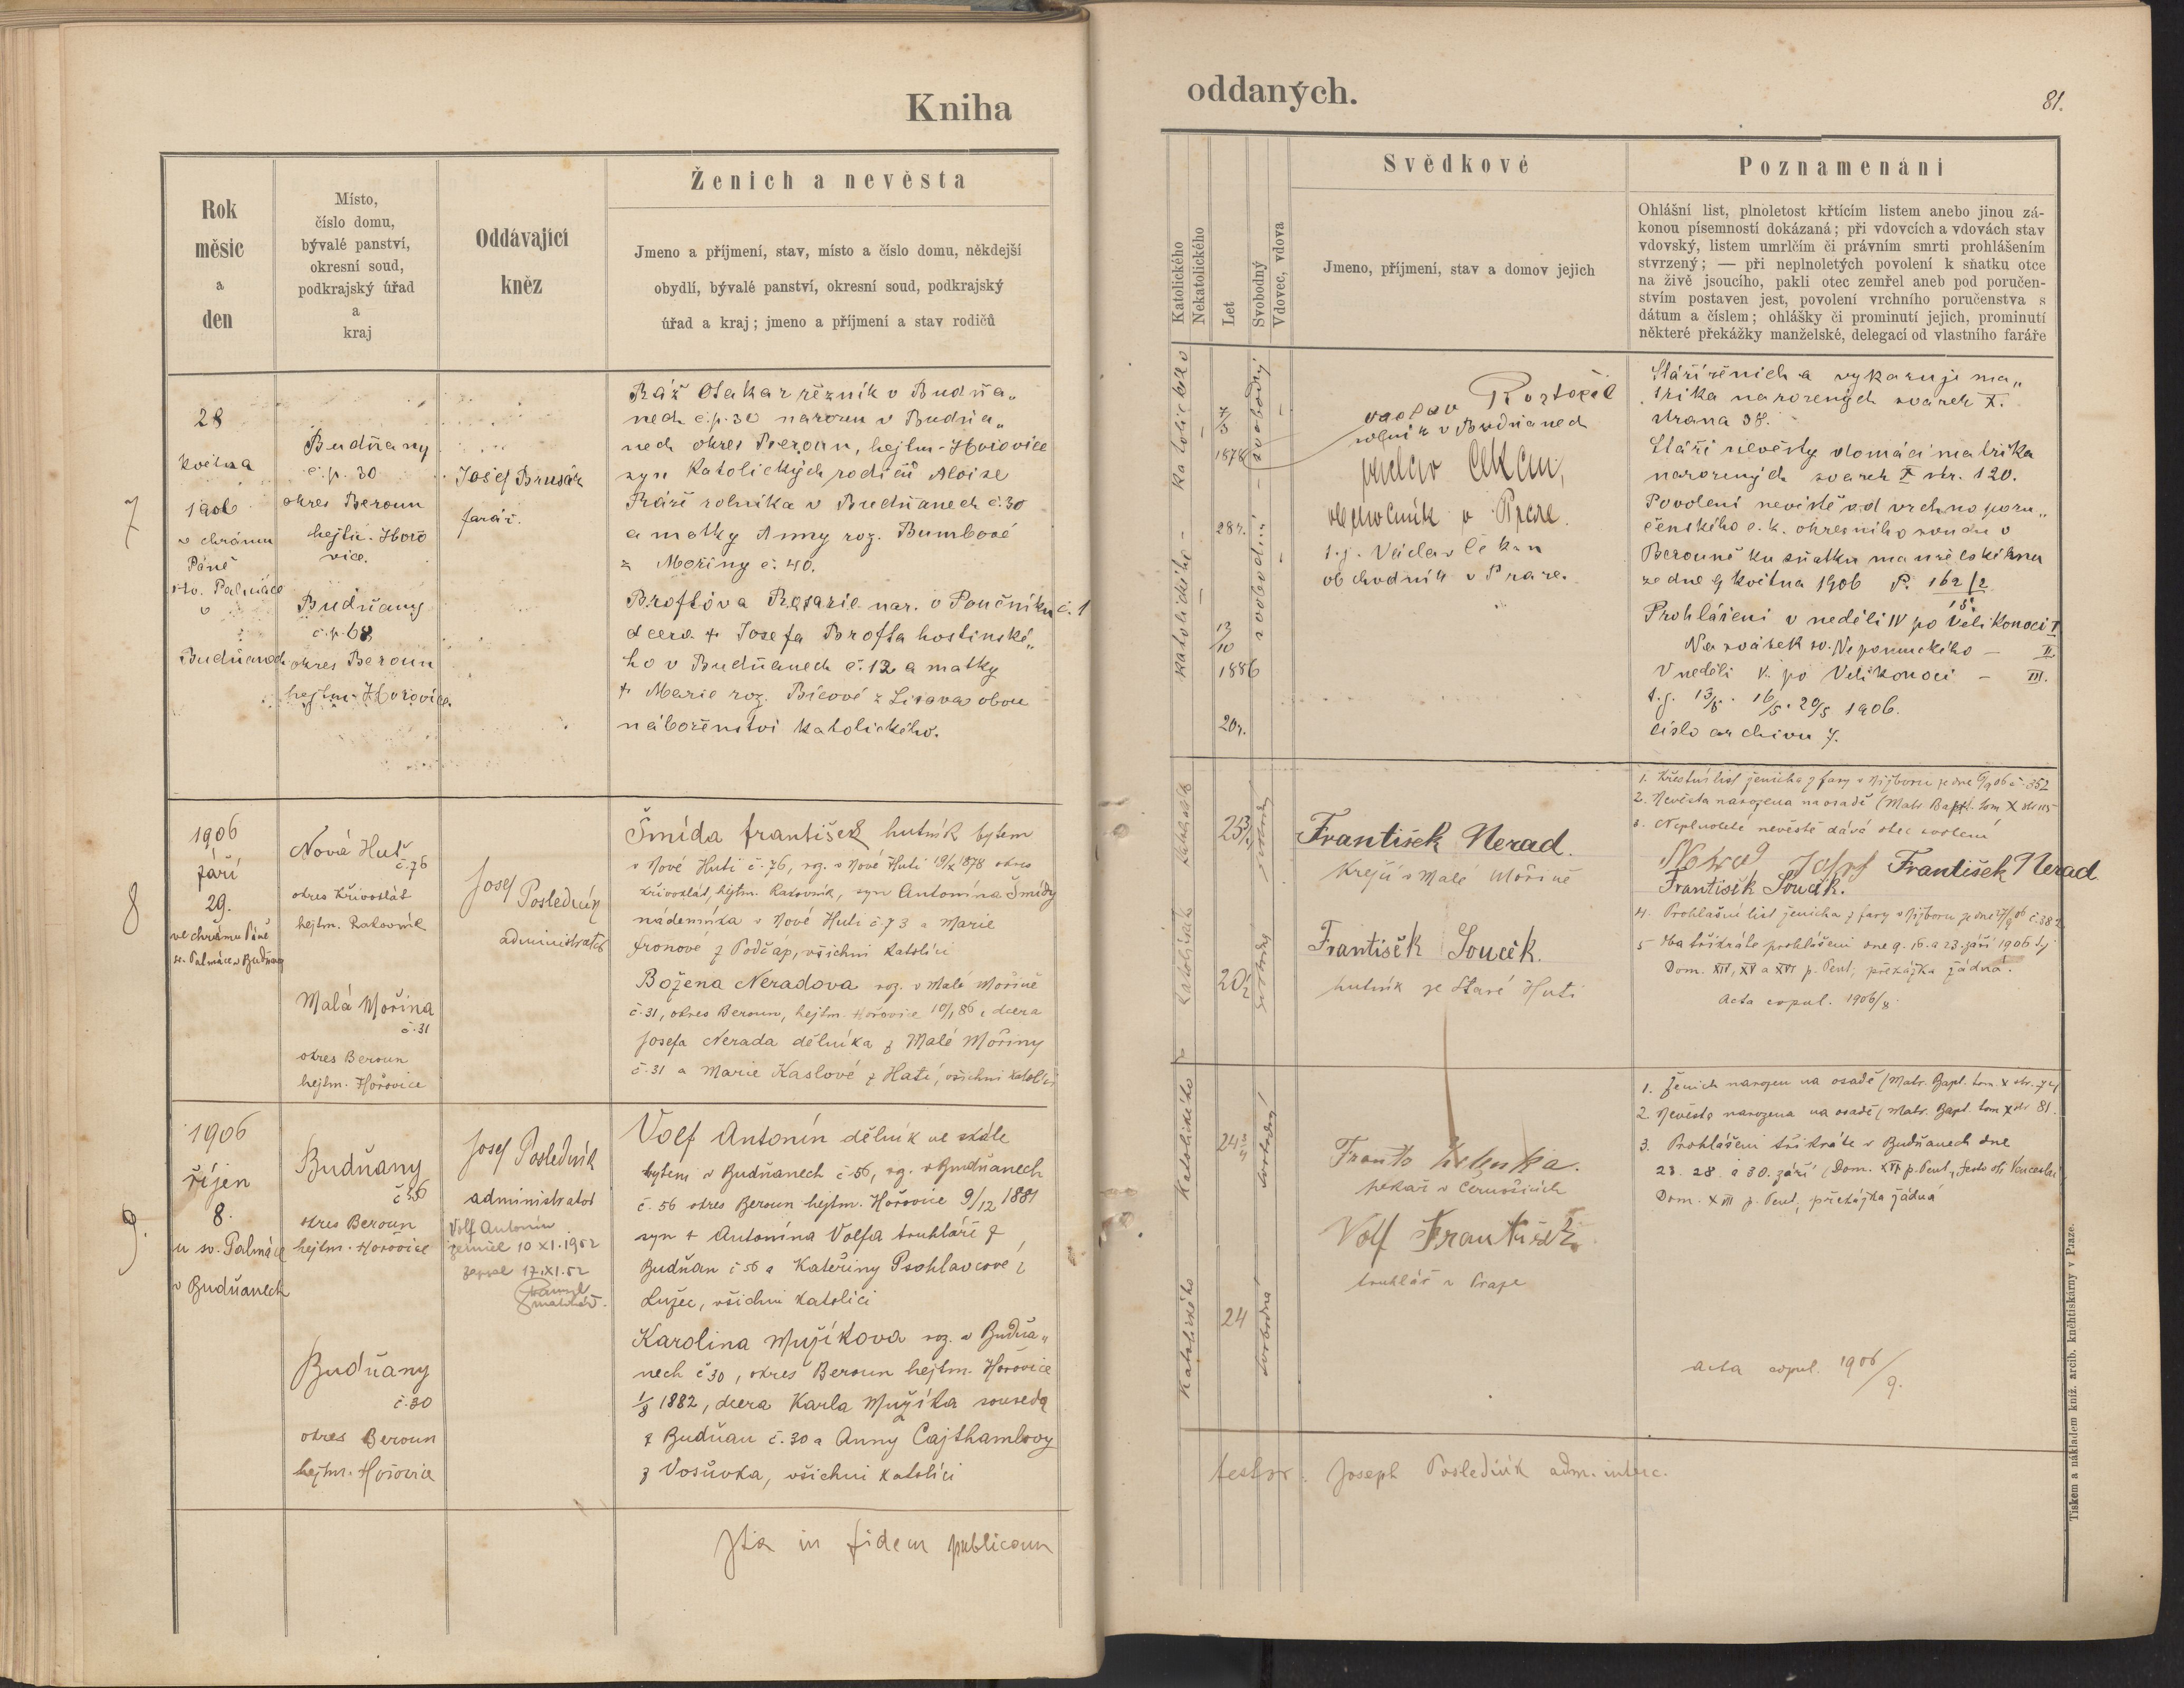 Kniha
oddaných.
81.
Rok
měsíc
a
den
Místo,
číslo domu,
bývalé panství,
okresní soud,
podkrajský úřad
a
kraj
Oddávající
kněz
Ženich a nevěsta
Jmeno a příjmení, stav, místo a číslo domu, někdejší
obydlí, bývalé panství, okresní soud, podkrajský
úřad a kraj; jmeno a příjmení a stav rodičů
Katolického
Nekatolického
Let
Svobodný
Vdovec, vdova
Svědkové
Jmeno, příjmení, stav a domov jejich
Poznamenání
Ohlášní list, plnoletost křtícím listem anebo jinou zá-
konou písemností dokázaná; při vdovcích a vdovách stav
vdovský, listem umrlčím či právním smrti prohlášením
stvrzený; — při neplnoletých povolení k sňatku otce
na živě jsoucího, pakli otec zemřel aneb pod poručen-
stvím postaven jest, povolení vrchního poručenstva s
dátum a číslem; ohlášky či prominutí jejich, prominutí
některé překážky manželské, delegací od vlastního faráře
7
28
května
1906
v chrámu
Páně
sv. Palmáce
v
Budňanech
Budňany
č.p. 30
okres Beroun
hejtm. Hořo
vice.
Budňany
č.p. 68
okres Beroun
hejtm. Hořovice.
Josef Brusák
farář.
Ráž Otakar řezník v Budňa„
nech č.p. 30 narozen v Budňa„
nech okres Beroun, hejtm. Hořovice
syn katolických rodičů Aloise
Ráže rolníka v Budňanech č. 30
a matky Anny roz. Bumbové
z Mořiny č. 40.
Broftova Rosarie nar. v Poučníku č. 1
dcera + Josefa Brofta hostinské„
ho v Budňanech č. 12 a matky
+ Marie roz. Bícové z Litava obou
náboženství katolického.
katolického
katolického
7/3
1878
28 r.
13/10
1886
20 r.
svobodný
svobodná
Václav Roztočil
rolník v Budňanech
obchodník v Praze.
t.j. Václav Čekan
obchodník v Praze.
Stáří ženicha vykazuje ma„
trika narozených svazek X.
strana 38.
Stáří nevěsty domácí matrika
narozených svazek X str. 120.
Povolení nevěstě od vrchno poru„
čenského c. k. okresního soudu v
Berouně ku sňatku manželskému
ze dne 9 května 1906 P. 162/2
15.
Prohlášení v neděli IV po Velikonoci I
Na svátek sv. Nepomuckého — II
V neděli V. po Velikonoci — III.
t.j. 13/5. 16/5. 20/5 1906.
číslo archivu 7.
8
1906
září
29.
ve chrámu Páně
sv. Palmáce v Budňan
Nová Huť
č. 76
okres Křivoklát
hejtm. Rakovník
Malá Mořina
č. 31
okres Beroun
hejtm. Hořovice
Josef
Posledník
administrator
Šmída František hutník bytem
v Nové Huti č. 76, roz. v Nové Huti 19/ 1878 okres
Křivoklát, hejtm. Rakovník, syn Antonína Šmídy
nádeníka v Nové Huti č. 73 a Marie
z Podčáp, všichni katolíci
Božena Neradova roz. v Malé Mořině
č. 31, okres Beroun, hejtm. Hořovice 10/1 86, dcera
Josefa Nerada dělníka z Malé Mořiny
č. 31 a Marie Kaslové z Hatí, všichni katolíci
František Nerad.
Krejčí v Malé Mořině
František Souček.
hutník ze Staré Huti
1. Křestní list ženicha z fary v Nižboru ze dne 1906 č. 352
2. Nevěsta narozena na osadě (Matr. Bapt. tom X str 115
3. Neplnoleté nevěstě dává otec svolení
Nerad Josef František Nerad
František Souček.
4. Prohlašní list ženicha z fary v Nižboru ze dne 27/9 06 č. 382
5 Oba třikráte prohlášeni dne 9. 16. a 23. září 1906 tj
Dom. XIV, XV a XVI p. Pent, překážka žádná.
Acta copul. 1906/8
9.
1906
říjen
8.
u sv. Palmáce
v Budňanech
Budňany
č. 56
okres Beroun
hejtm. Hořovice
Budňany
č. 30
okres Beroun
hejtm. Hořovice
Josef Posledník
administrator
Volf Antonín
zemřel 10 XI. 1952
zapsal 17. XI. 52
Volf Antonín dělník ve skále
bytem v Budňanech č. 56, roz. v Budňanech
č. 56 okres Beroun hejtm. Hořovice 9/12 1881
syn + Antonína Volfa truhláře z
Budňan č 56 a Kateřiny Psohlavcové z
Lužec, všichni katolíci
Karolina Mužíkova roz. v Budňa„
nech č 30, okres Beroun hejtm. Hořovice
1/8 1882, dcera Karla Mužíka souseda
z Budňan č. 30 a Anny Cajthamlovy
z Vosůvka, všichni katolíci
Katolického
Katolického
24
24
svobodný
svobodná
pekař v Černošicích
Volf František
truhlář v Praze
1. Ženich narozen na osadě (Matr. Bapt. tom. X str. 74
2. Nevěsta narozena na osadě (Matr. Bapt. tom X str 81.
3. Prohlášeni třikráte v Budňanech dne
23. 28. a 30. září (Dom. XVI p. Pent, festo
Dom. XVII p. Pent, překážka žádná
Acta copul. 1906/9.
Ita in fidem publicam
testor: Joseph Posledník adm. interc.
Tiskem a nákladem kníž. arcib. kněhtiskárny v Praze.